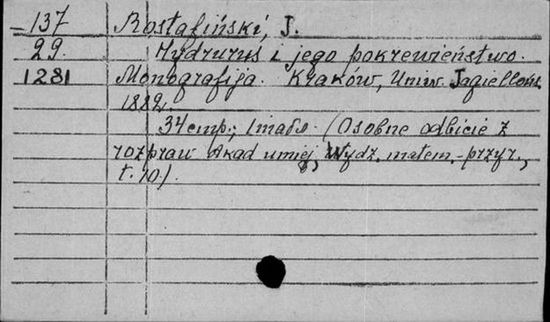 137 Rostafiński, J.
29. Hydrurus i jego pokrewieństwo.
1281 Monografija. Kraków, Uniw. Jagielloń.
1882.
34 стр., 1 табл. (Osobne odbicie z
rozpraw Akad umiej, Wydz. matem.-przyr.,
t. 10).